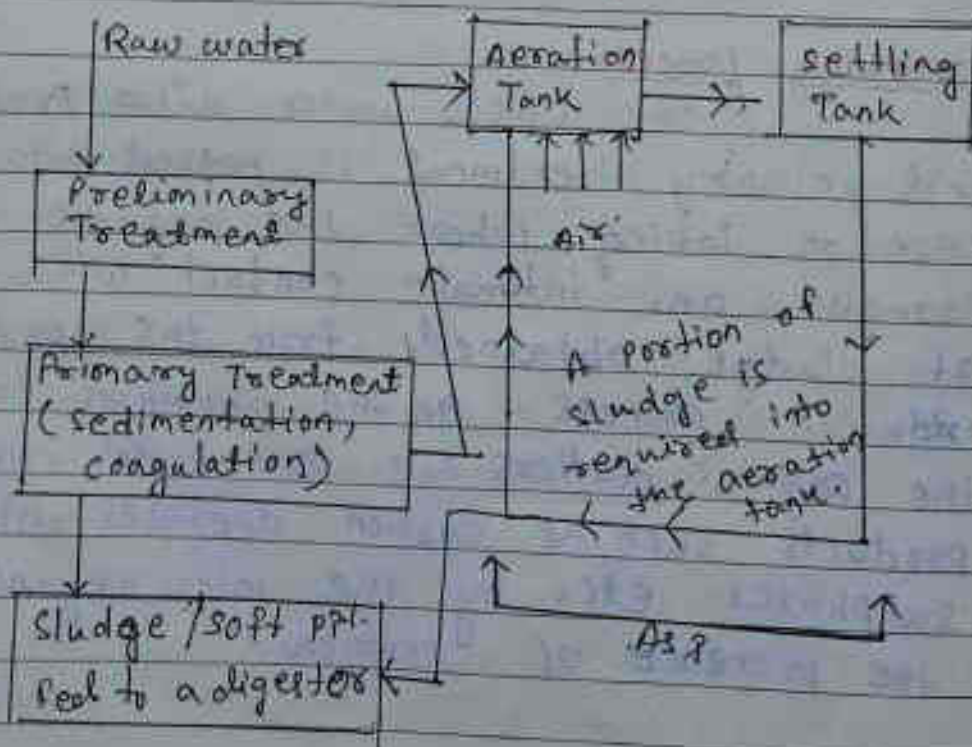 Raw water
Preliminary
Treatment
Arionary Treatment
(sedimentation,
coagulation)
Sludge/soft ppt.
feel to a digestor
Aeration
Tank
settling
Tank
Air
A portion of
sludge is
required into
the aeration
tank.